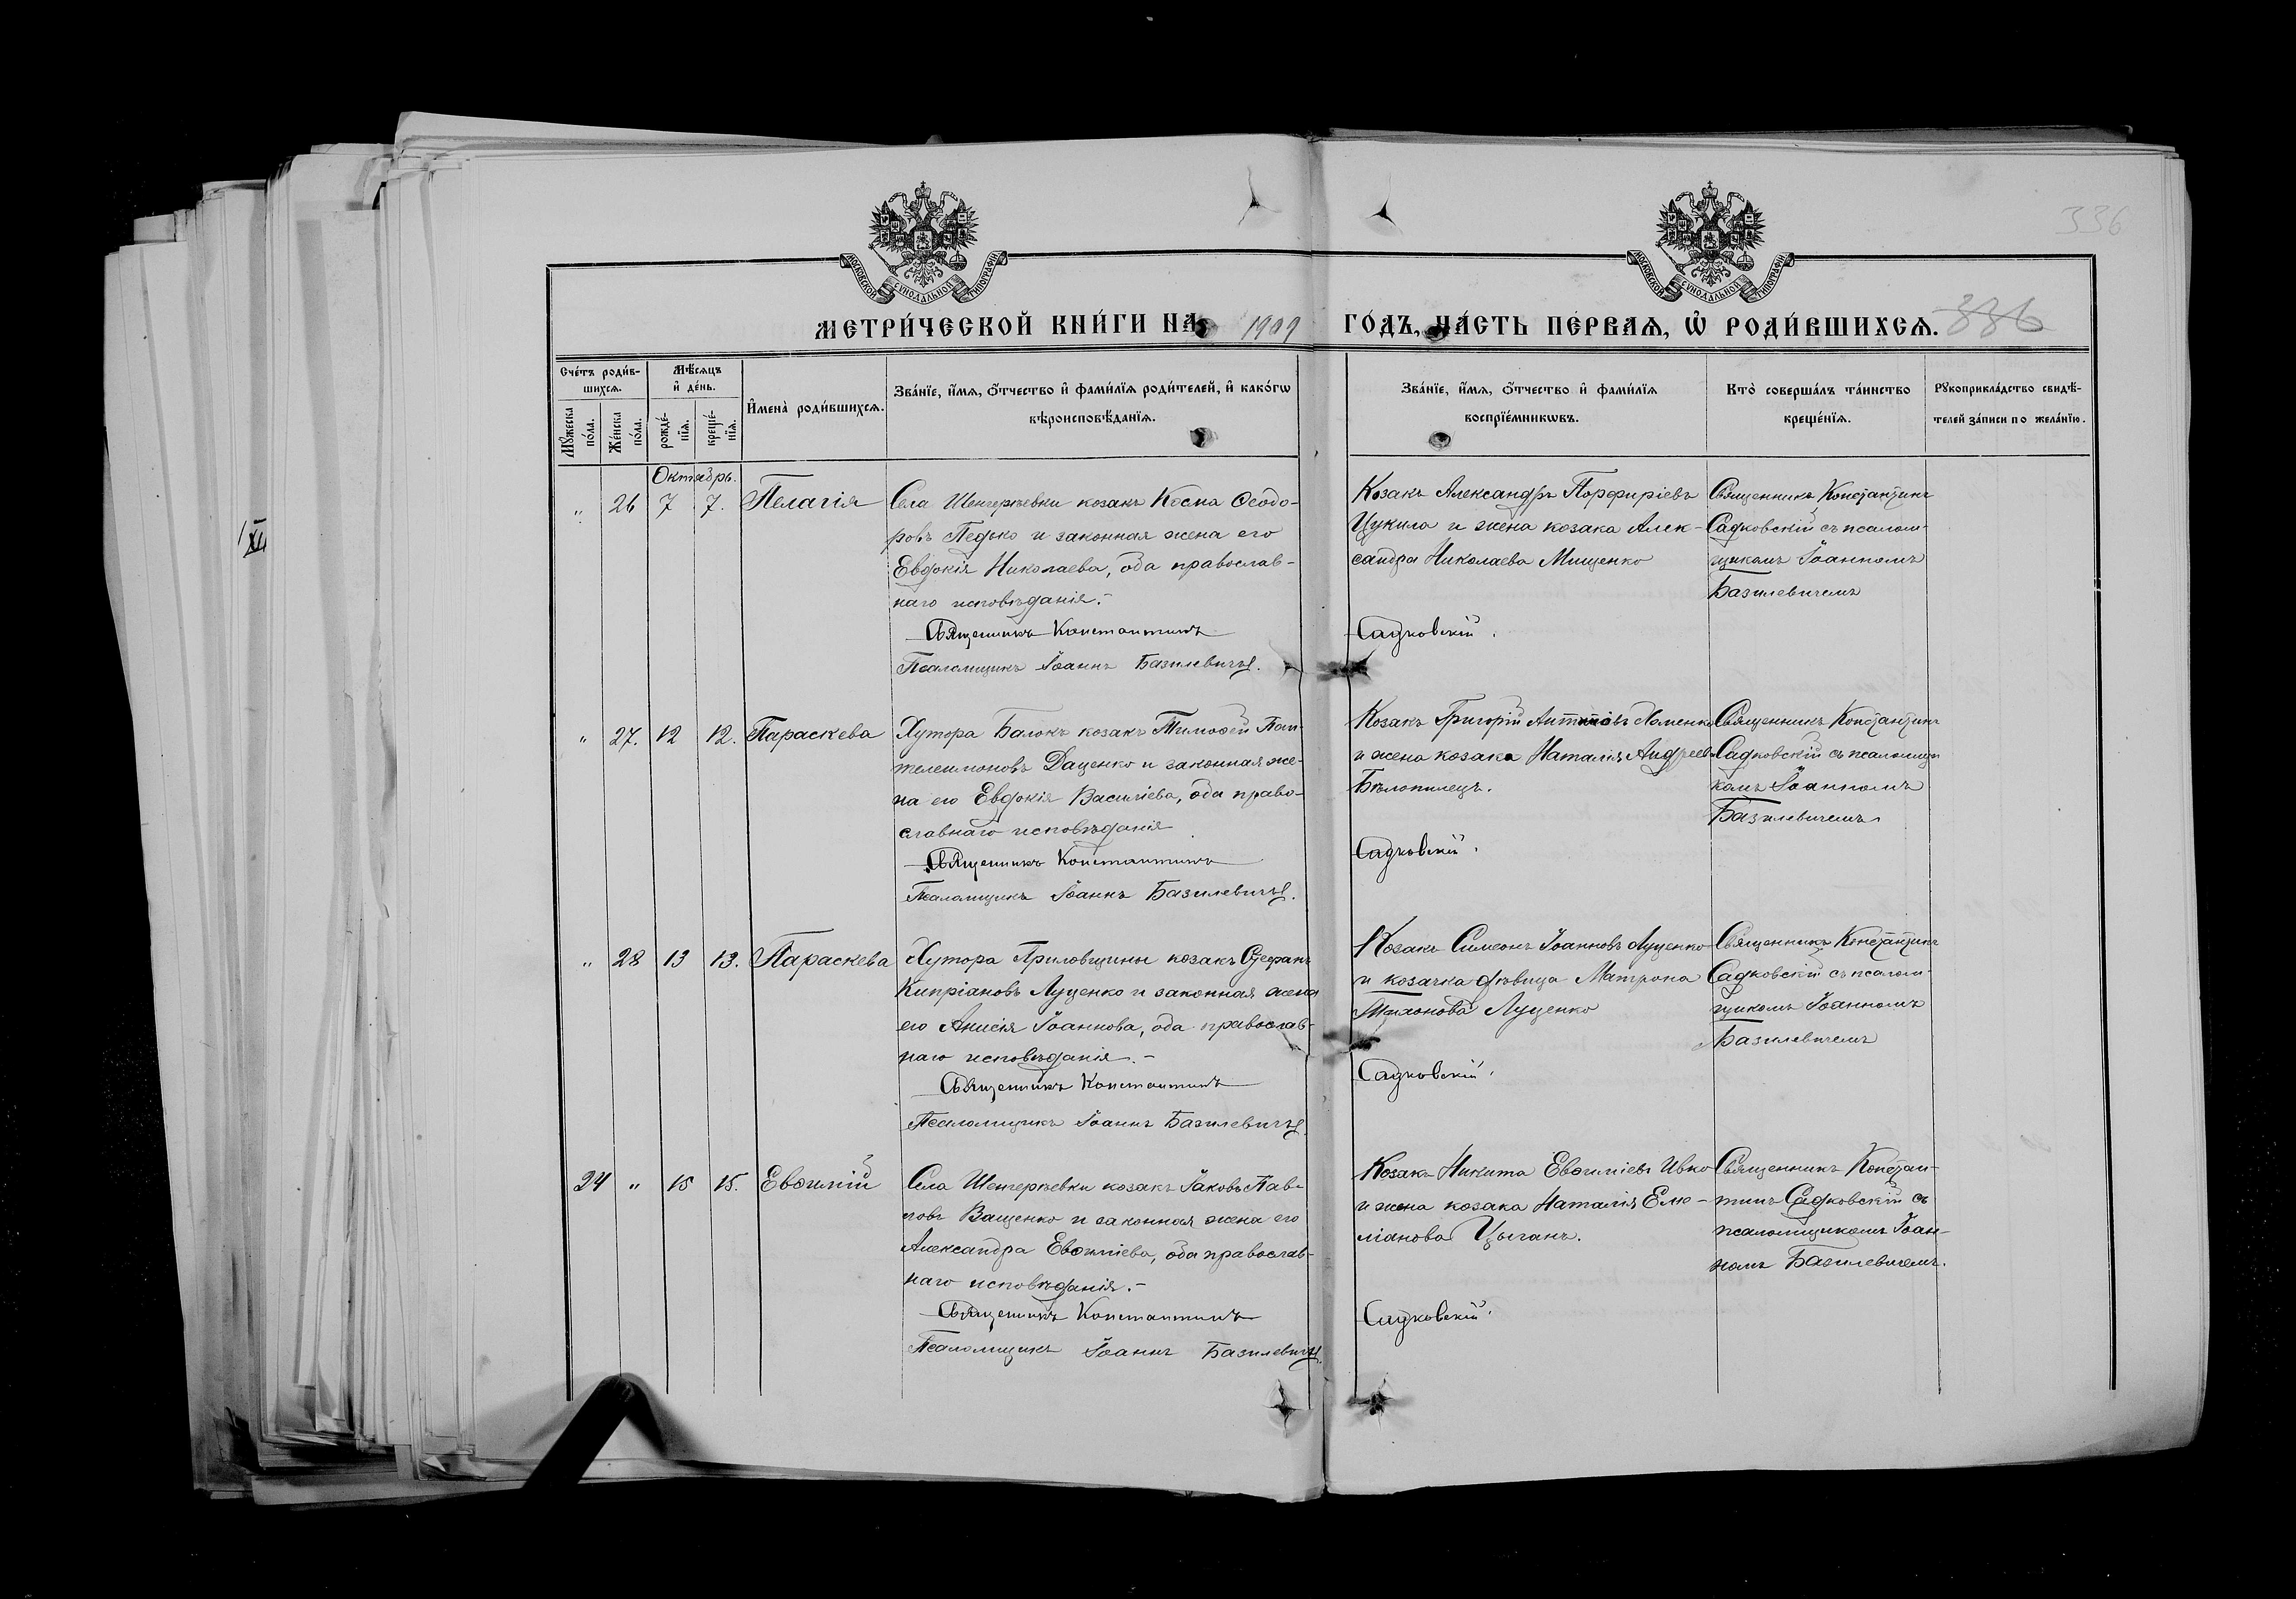 336
МОСКОВСКОЙ СѴНОДАЛЬНОЙ ТИПОГРАФІИ
МОСКОВСКОЙ СѴНОДАЛЬНОЙ ТИПОГРАФІИ
МЕТРИ́ЧЕСКОЙ КНИ́ГИ НА 1909 ГО́ДЪ, ЧА́СТЬ ПЕ́РВАѦ, Ѡ҆ РОДИ́ВШИХСѦ. 336
Сче́тъ роди́в-
шихсѧ.
Мꙋ́жеска
по́ла.
Же́нска
по́ла.
Мѣ́сѧцъ
и҆ де́нь.
рожде́-
нїѧ.
креще́-
нїѧ.
И҆мена̀ роди́вшихсѧ.
Зва́нїе, и҆́мѧ, ѻ҆́тчество и҆ фами́лїѧ роди́телей, и҆ како́гѡ
вѣроисповѣ́данїѧ.
Зва́нїе, и҆́мѧ, ѻ҆́тчество и҆ фами́лїѧ
воспрїе́мникѡвъ.
Кто̀ соверша́лъ та́инство
креще́нїѧ.
Рꙋкоприкла́дство свидѣ́-
телей за́писи по жела́нїю.
Октябрь.
„ 26 7 7. Пелагія
Села Шенгерѣевки козакъ Косма Ѳеодо-
ровъ Педько и законная жена его
Евдокія Николаева, оба православ-
наго исповѣданія.-
Священникъ Константинъ
Псаломщикъ Іоаннъ Базилевичъ.
Козакъ Александръ Порфиріевъ
Цукила и жена козака Алек-
сандра Николаева Мищенко
Садковскій.
Священникъ Константинъ
Садковскій съ псалом-
щикомъ Іоанномъ
Базилевичемъ
„ 27. 12 12. Параскева
Хутора Балокъ козакъ Тимоѳей Пан-
телеимоновъ Даценко и законная же-
на его Евдокія Василіева, оба право-
славнаго исповѣданія
Священникъ Константинъ
Псаломщикъ Іоаннъ Базилевичъ.
Козакъ Григорій
и жена козака Наталія Андреева
Бѣлопилецъ.
Садковскій.
Священникъ Константинъ
Садковскій съ псаломщи
комъ Іоанномъ
Базилевичемъ
„ 28 13 13. Параскева
Хутора Ѳедоръ козакъ Стефанъ
Кипріановъ Луценко и законная жена
его Анисія Іоаннова, оба православ-
наго исповѣданія.-
Священникъ Константинъ
Псаломщикъ Іоаннъ Базилевичъ.
Козакъ Симеонъ Іоанновъ Луценко
и козачка дѣвица Матрона
Луценко
Садковскій.
Священникъ Константинъ
Садковскій съ псалом-
щикомъ Іоанномъ
Базилевичемъ
24 „ 15 15. Евѳимій
Села Шенгерѣевки козакъ Іаковъ Пав-
ловъ Ващенко и законная жена его
Александра Евѳиміева, оба православ-
наго исповѣданія.-
Священникъ Константинъ
Псаломщикъ Іоаннъ Базилевичъ.
Козакъ Никита Евѳиміевъ Ивко
и жена козака Наталія Еми-
ліанова Цыганъ.
Садковскій.
Священникъ Констан-
тинъ Садковскій съ
псаломщикомъ Іоан-
номъ Базилевичемъ.